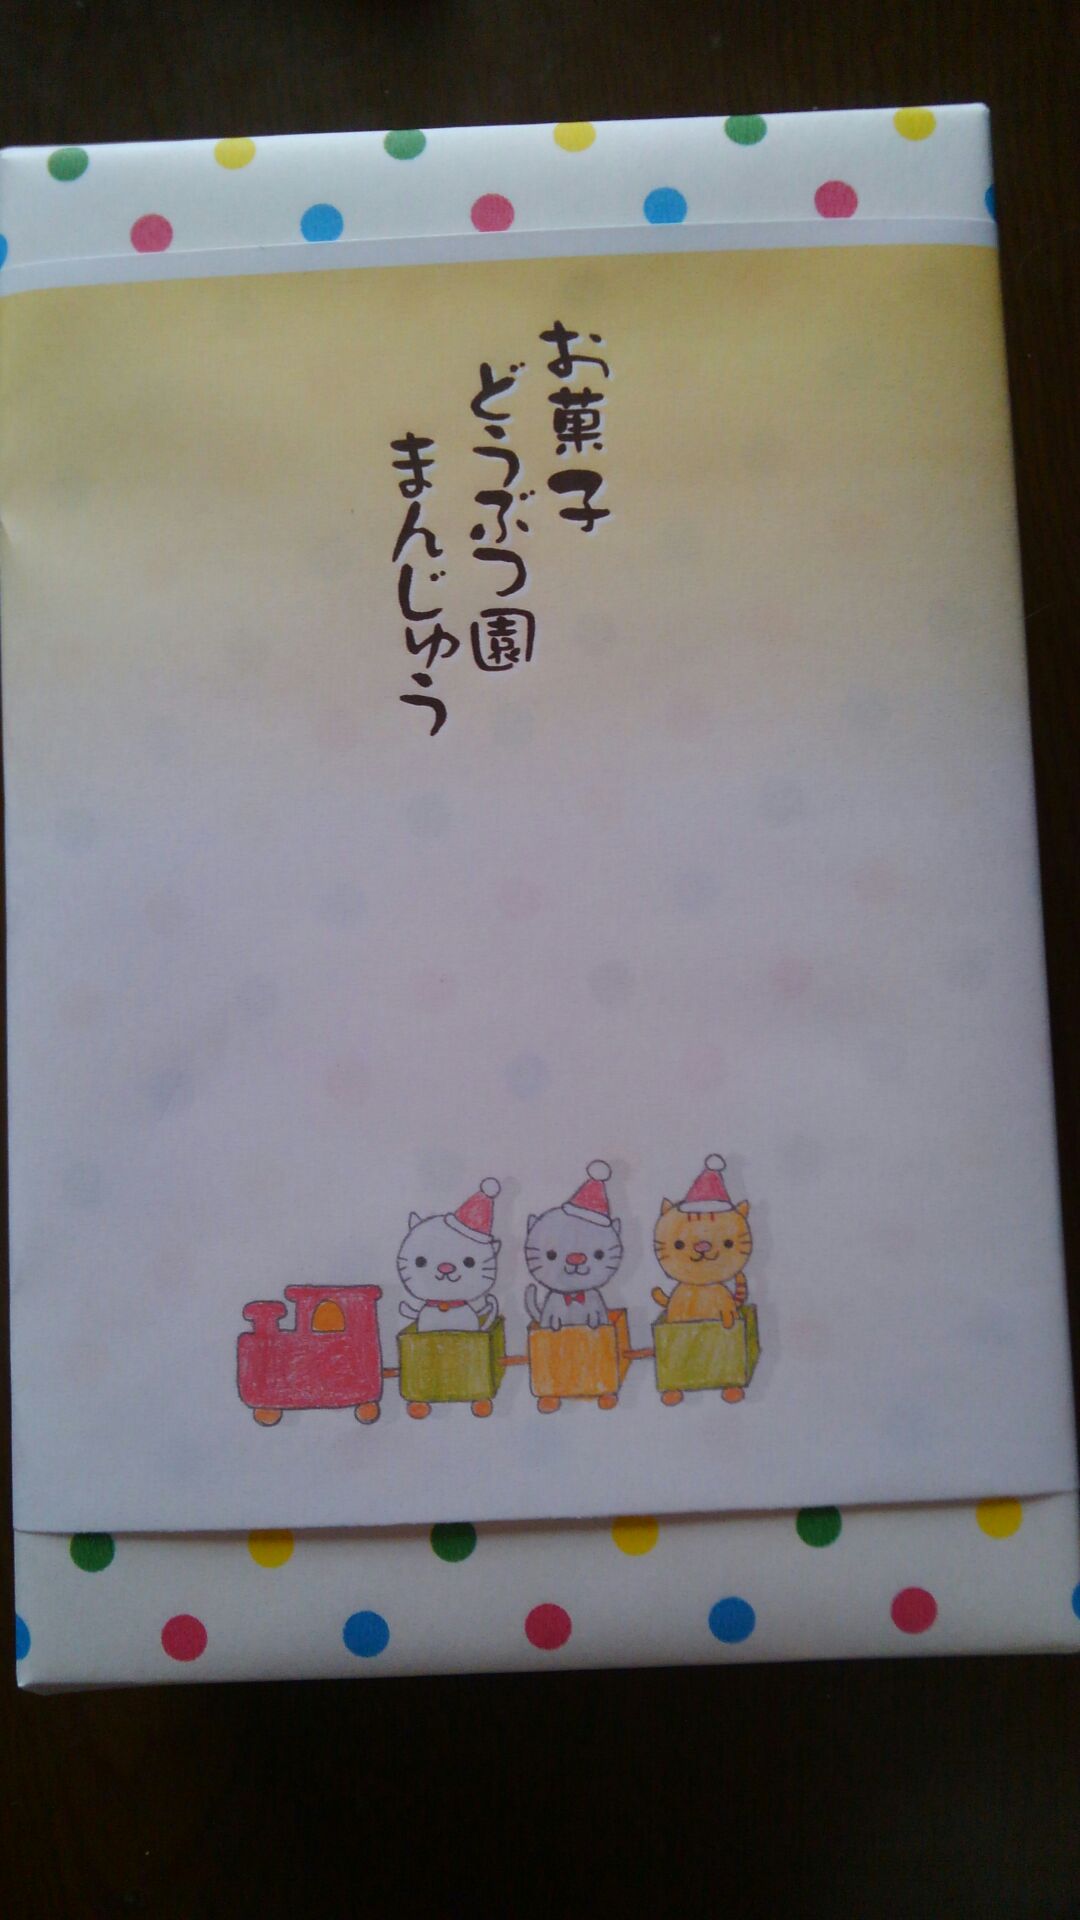 お菓子
どうぶつ園
まんじゅう